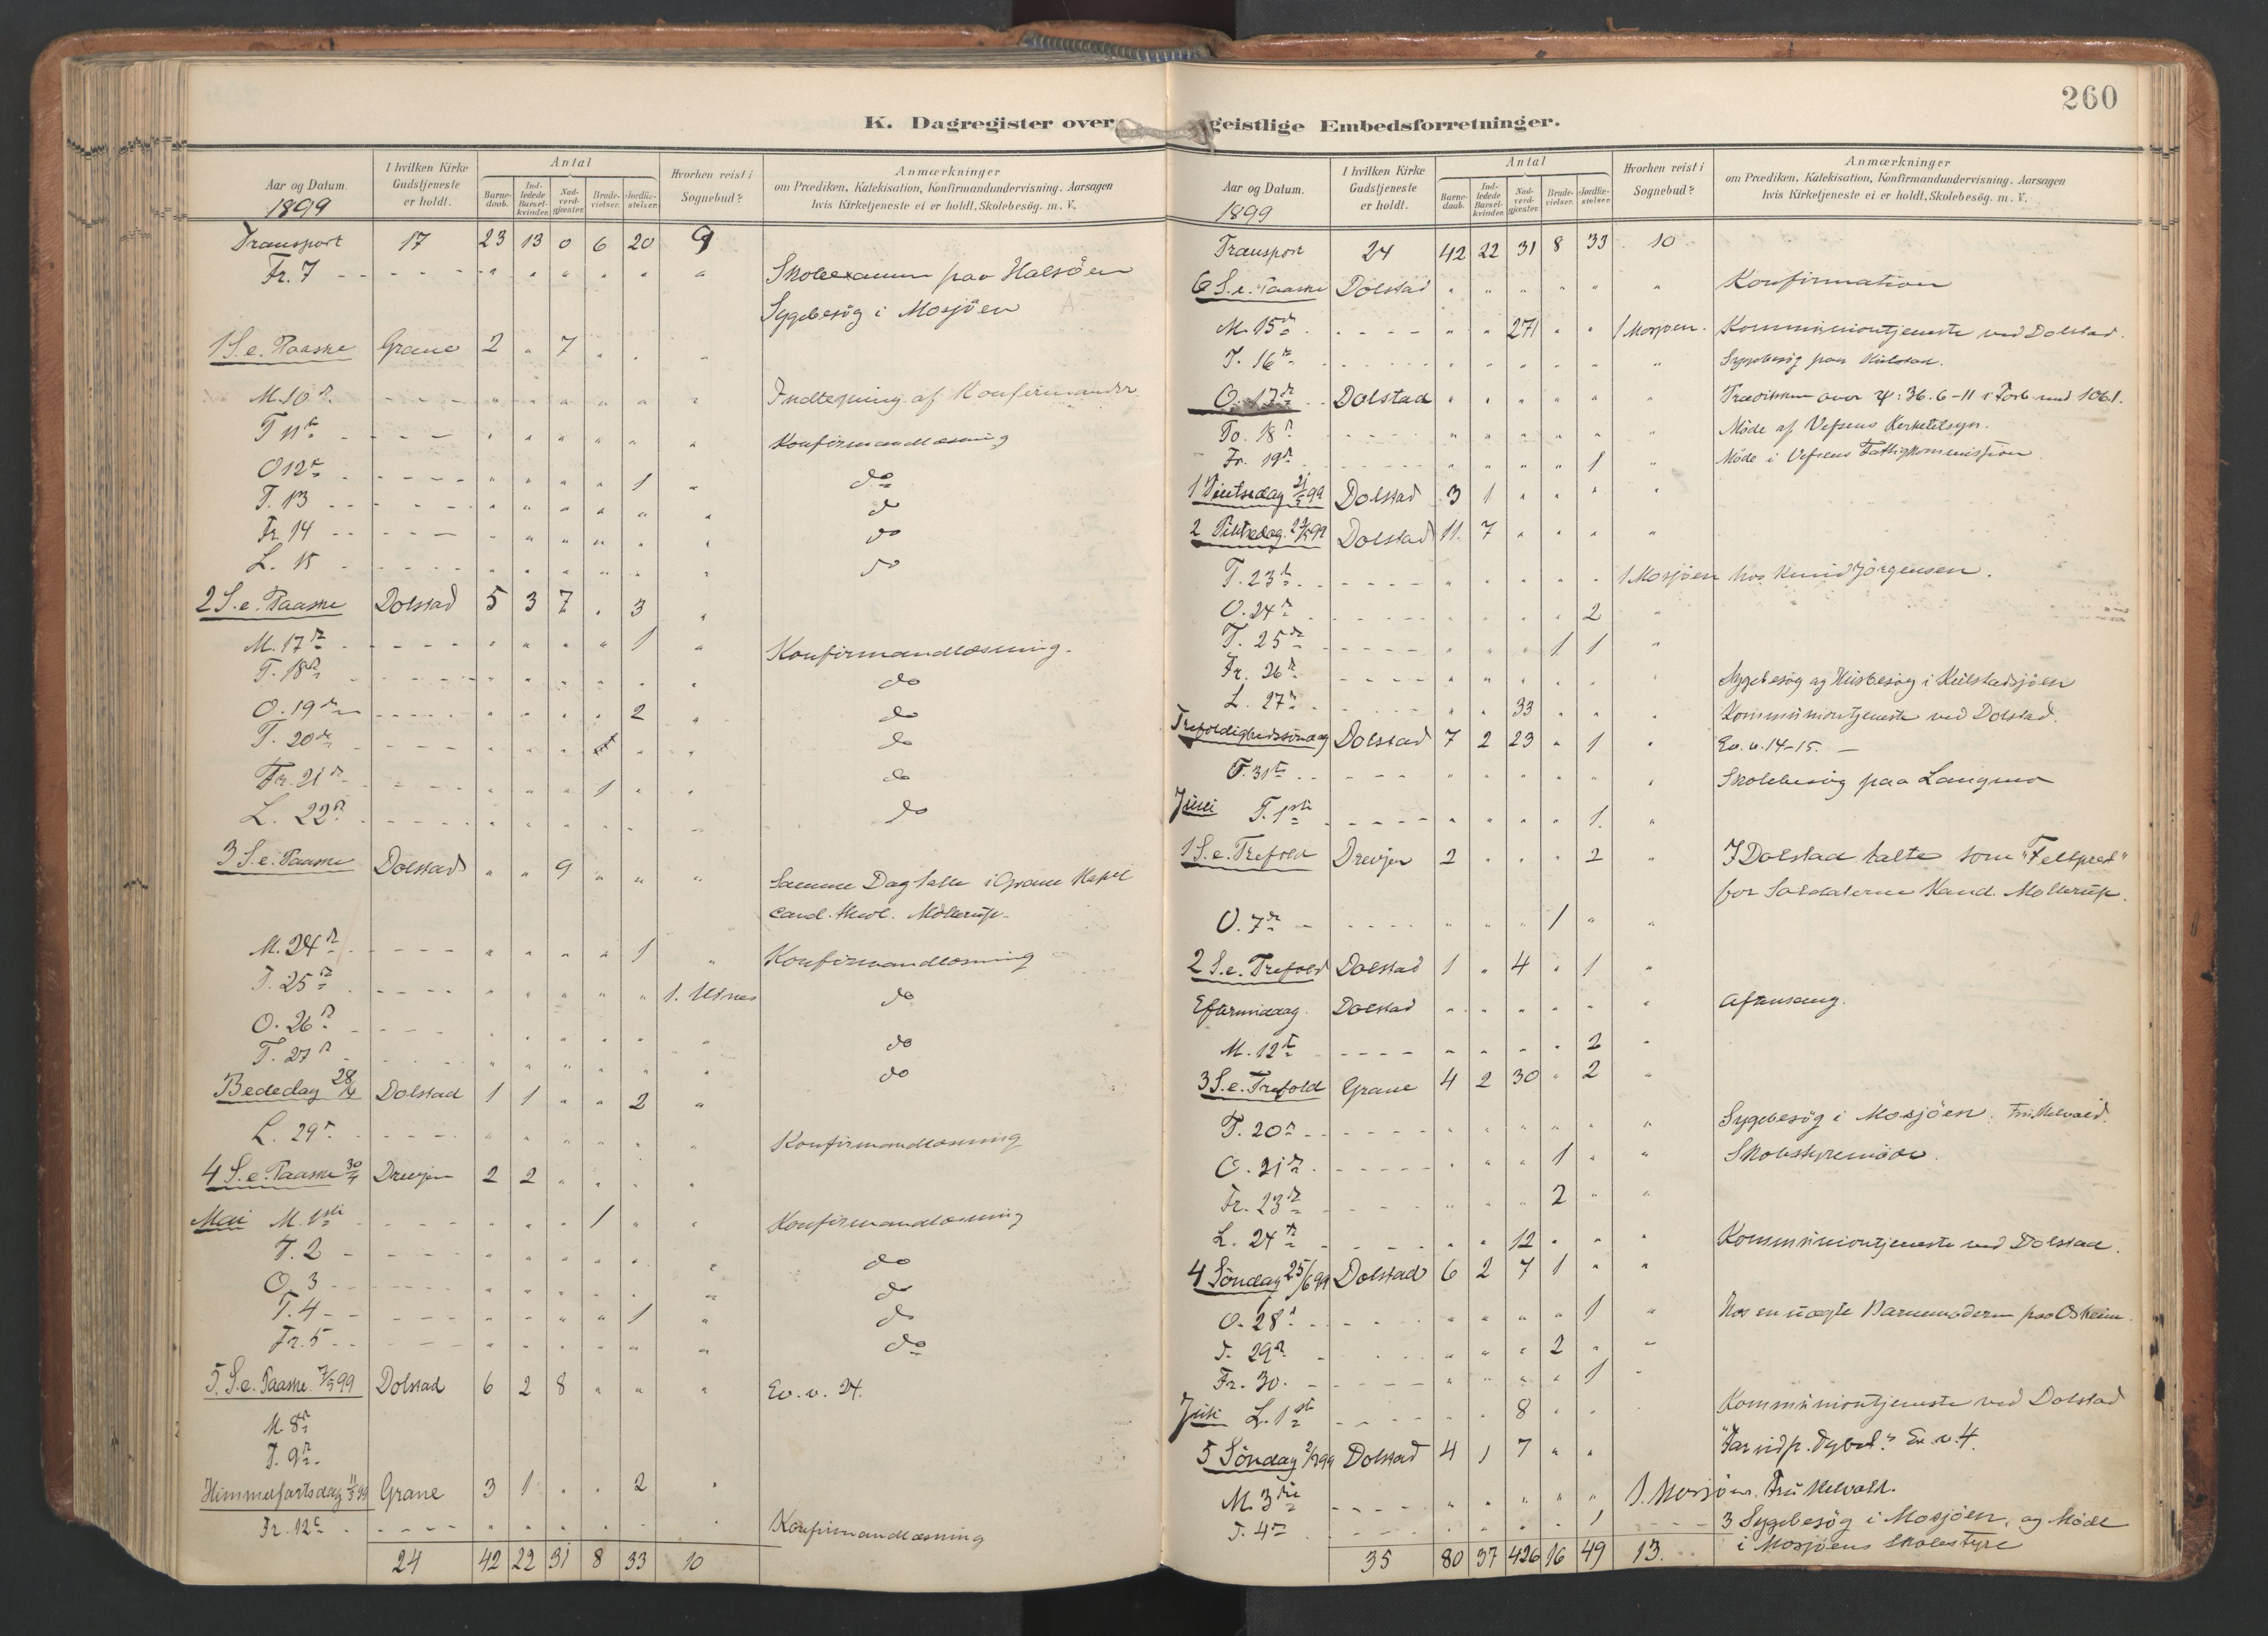 260
K. Dagregister over geistlige Embedsforretninger.
Aar og Datum. I hvilken Kirke Gudstjeneste er holdt. Antal Barnedaab. Indledede Barselkvinder. Nadverdgjester. Brudevielser. Jordfæstelser. Hvorhen reist i Sognebud? Anmærkninger om Prædiken, Katekisation, Konfirmandundervisning. Aarsagen hvis Kirketjeneste ei er holdt, Skolebesög. m. V.
1899
Transport 17 23 13 0 6 20 9
Fr. 7 - - - - - - " " " " " " " Skoleexamen paa Halsöen
Sygebesög i Mosjöen
1 S. e. Paaske Grane 2 " 7 " " "
M. 10 d. - - - - " " " " " " Indtegning af Konfirmander
T. 11te - - - - " " " " " " Konfirmandlæsning
O 12te - - - - " " " " 1 " do
T. 13 - - - - - " " " " " " do
Fr. 14 - - - - - " " " " " " do
L. 15 - - - - - " " " " " " do
2 S. e. Paaske Dolstad 5 3 7 " 3 "
M. 17d. - - - - " " " " 1 " Konfirmandlæsning.
T. 18d. - - - - " " " " " " do
O. 19de - - - - " " " " 2 " do
T. 20de - - - - " " " " " do
Fr. 21d. - - - - " " " 1 " " do
L. 22d. - - - - " " " " " " do
3 S. e. Paaske Dolstad " " 9 " " " Samme Dag talte i Grane Kapel
cand. theol. Mollerup.
M. 24d. - - - - " " " " 1 " Konfirmandlæsning
T. 25d. - - - - " " " " " 1. Utnes do
O. 26d. - - - - " " " " " " do
T. 27d. - - - - " " " " " " do
Bededag 28/4 Dolstad 1 1 " " 2 "
L. 29d. - - - - " " " " " " Konfirmandlæsning
4 S. e. Paaske 30/4 Drevjen 2 2 " " " "
Mai M. 1ste - - - - " " " 1 " " Konfirmandlæsning
T. 2 - - - - - " " " " " " do
O. 3 - - - - - " " " " " " do
T. 4 - - - - - " " " " 1 " do
Fr. 5 - - - - - " " " " " " do
5. S. e. Paaske 7/5 99 Dolstad 6 2 8 " " " Ev. v. 24.
M. 8d.
T. 9d.
Himmelfartsdag 11/5 99 Grane 3 1 " " 2 "
Fr. 12te - - - - " " " " " " Konfirmandlæsning
24 42 22 31 8 33 10
Aar og Datum. I hvilken Kirke Gudstjeneste er holdt. Antal Barnedaab. Indledede Barselkvinder. Nadverdgjester. Brudevielser. Jordfæstelser. Hvorhen reist i Sognebud? Anmærkninger om Prædiken, Katekisation, Konfirmandundervisning. Aarsagen hvis Kirketjeneste ei er holdt, Skolebesög. m. V.
1899
Transport 24 42 22 31 8 33 10
6 S. e. Paaske Dolstad " " " " " " Konfirmation
M. 15d. - - - - " " 271 " " 1 Mosjöen. Kommuniontjeneste ved Dolstad.
T. 16d. - - - - " " " " " " Sygebesög paa Kulstad.
O. 17de Dolstad " " " " " " Prædiken over ψ: 36. 6-11 i Forb. med 1061.
To. 18d. - - - - " " " " " " Möde af Vefsens Kirketilsyn.
Fr. 19d. - - - - " " " " 1 " Möde i Vefsens Fattigkommission
1 Pintsedag 21/5 99 Dolstad 3 1 " " " "
2 Pintsedag 22/5 99 Dolstad 11. 7 " " " "
T. 23d. - - - - " " " " " 1 Mosjöen hos Knud Jörgensen.
O. 24d. - - - - " " " " 2 "
T. 25de - - - - " " " 1 1 "
Fr. 26d. - - - - " " " " " " Sygebesög og Husbesög i Kulstadsjöen
L. 27d. - - - - " " 33 " " " Kommuniontjeneste ved Dolstad.
Trefoldighedssöndag Dolstad 7 2 23 " 1 " Ev. v. 14-15. -
O. 31te - - - - " " " " " " Skolebesög paa Langmo
Juni T. 1ste - - - - " " " " 1. "
1 S. e. Trefold Drevjen 2 " " " 2 " I Dolstad talte som "Feltprest"
for Soldaterne Kand. Mollerup.
O. 7de - - - - " " " 1 " "
2 S. e. Trefold Dolstad 1 " 4 " 1 "
Eftermiddag. Dolstad " " " " " " Aftensang.
M. 12te - - - - " " " " 2 "
3 S. e. Trefold Grane 4 2 30 " 2 "
T. 20d. - - - - " " " " " " Sygebesög i Mosjöen. Fru Helvald.
O. 21d. - - - - " " " 1 " " Skolestyremöde.
Fr. 23d. - - - - " " " 2 " "
L. 24d. - - - - " " 12 " " " Kommuniontjeneste ved Dolstad.
4 Söndag 25/6 99 Dolstad 6 2 7 1 " "
O. 28d. - - - - " " " " 1 " Hos en uægte Barnemoder paa Osheim.
T. 29d. - - - - " " " 2 " "
Fr. 30. - - - - " " " " 1 "
Juli L. 1ste - - - - " " 8 " " Kommuniontjeneste ved Dolstad
5 Söndag 2/7 99 Dolstad 4 1 7 " " "Far ud p. Dybet." Ev. v. 4.
M. 3die - - - - " " " " " 1. Mosjöen. Fru Helvald.
T. 4d. - - - - " " " " 1 - - - 3 Sygebesög i Mosjöen, og Möde
i Mosjöens Skolestyre
35 80 37 426 16 49 13.